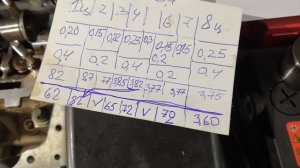 Дц 2 3 4 6 7 8 ц
0,20 0,15 0,22 0,25 0,3 0,15 0,15 0,25
0,2
0,4 0,2 0,4 0,2 0,4
82 87 77 385 382 377 3,77 3,75
62 82 V 65 72 V 72 3,60